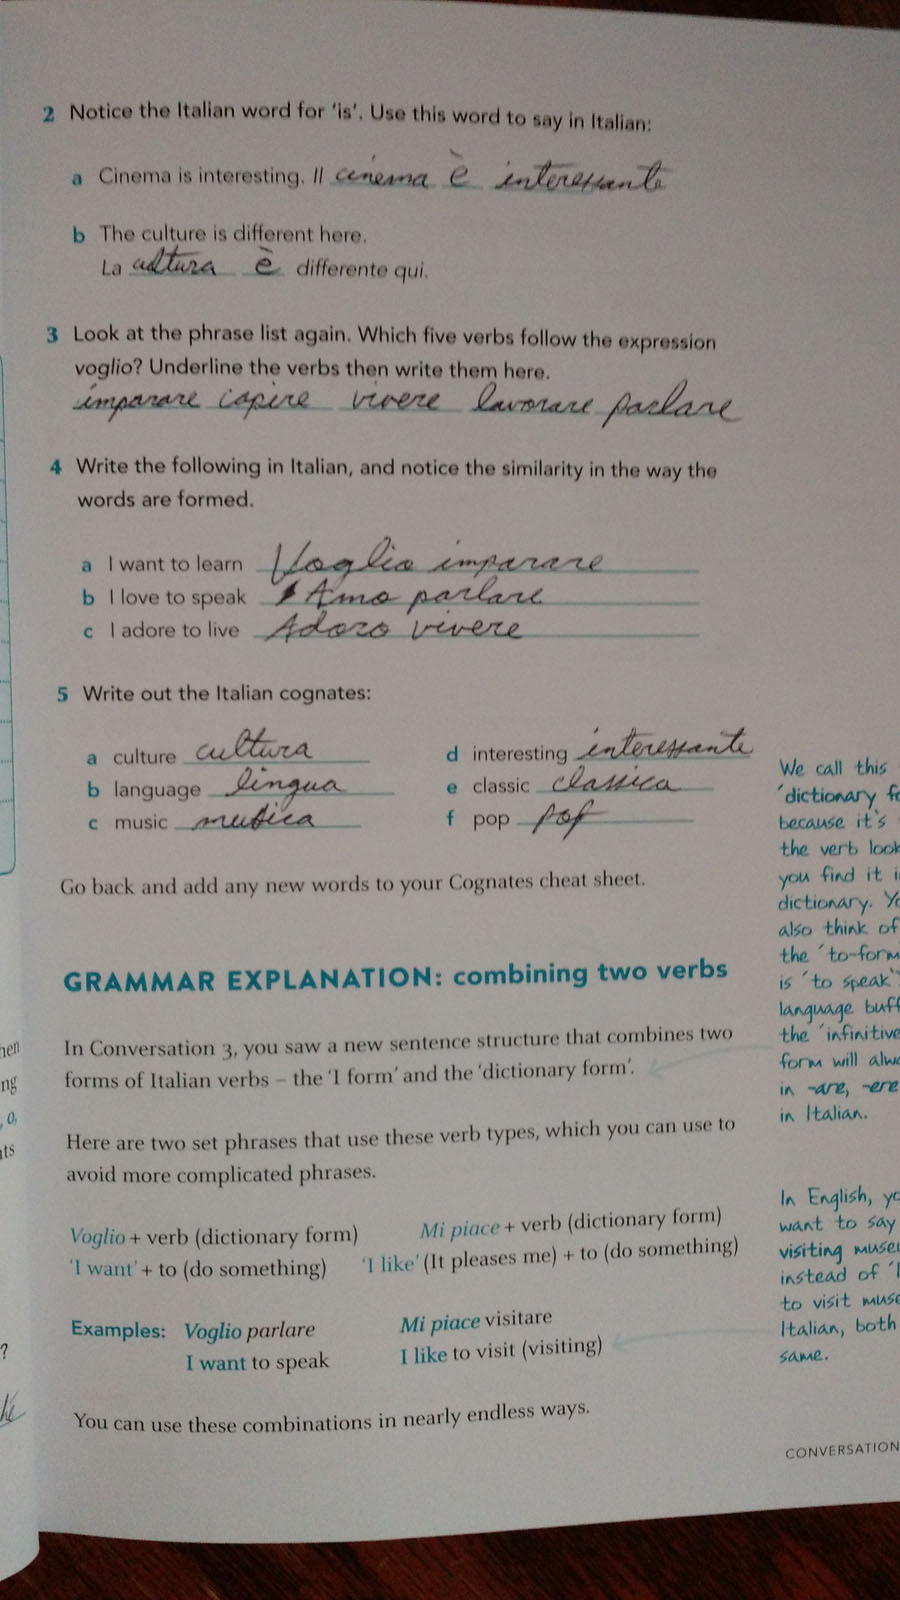 2 Notice the Italian word for 'is'. Use this word to say in Italian:
a Cinema is interesting. Il cinema è interessante
b The culture is different here.
La cultura è differente qui.
3 Look at the phrase list again. Which five verbs follow the expression
voglio? Underline the verbs then write them here.
imparare capire vivere lavorare parlare
4 Write the following in Italian, and notice the similarity in the way the
words are formed.
a I want to learn Voglio imparare
b I love to speak Amo parlare
c I adore to live Adoro vivere
5 Write out the Italian cognates:
a culture cultura d interesting interessante
b language lingua e classic classica
c music musica f pop pop
Go back and add any new words to your Cognates cheat sheet.
GRAMMAR EXPLANATION: combining two verbs
In Conversation 3, you saw a new sentence structure that combines two
forms of Italian verbs – the 'I form' and the 'dictionary form'.
Here are two set phrases that use these verb types, which you can use to
avoid more complicated phrases.
Voglio + verb (dictionary form) Mi piace + verb (dictionary form)
'I want' + to (do something) 'I like' (It pleases me) + to (do something)
Examples: Voglio parlare Mi piace visitare
I want to speak I like to visit (visiting)
You can use these combinations in nearly endless ways.
We call this
'dictionary fo
because it's
the verb look
you find it i
dictionary. Yo
also think of
the 'to-form
is 'to speak'
language buff
the 'infinitive
form will alwa
in -are, -ere
in Italian.
In English, yo
want to say
visiting museu
instead of 'I
to visit muse
Italian, both
same.
CONVERSATION
hen
ng
, o,
nts
?